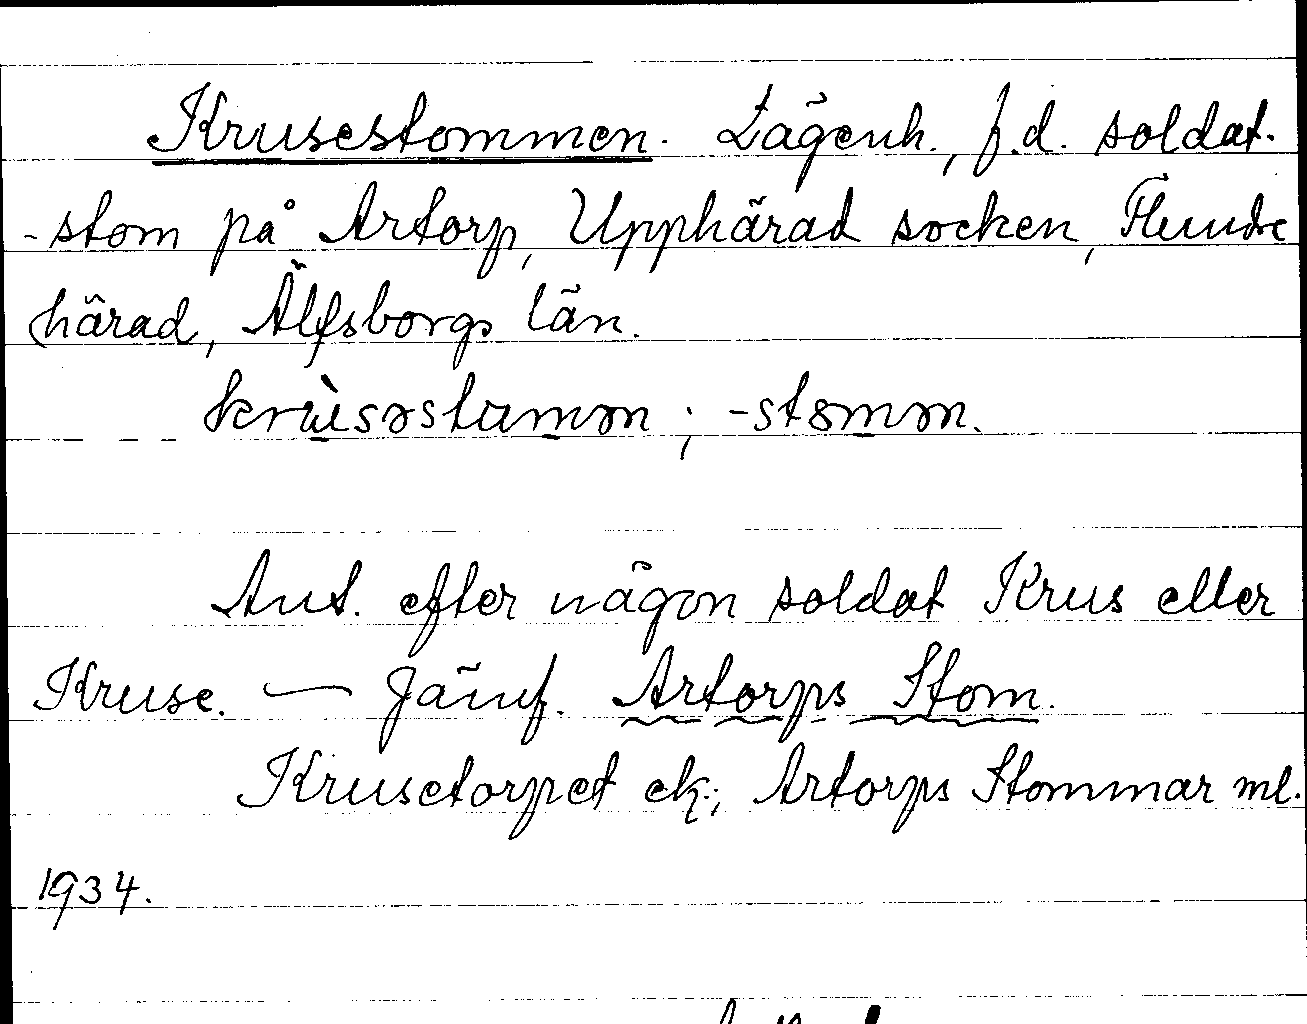 Krusestommen. Lägenh., f.d. soldat-
-stom på Artorp, Upphärad socken, Flundre
härad, Älfsborgs län.
krùsəstamən ; -stomən.
Ant. efter någon soldat Krus eller
Kruse. — Jämf. Artorps Stom.
Krusetorpet ek.; Artorps Stommar ml.
1934.